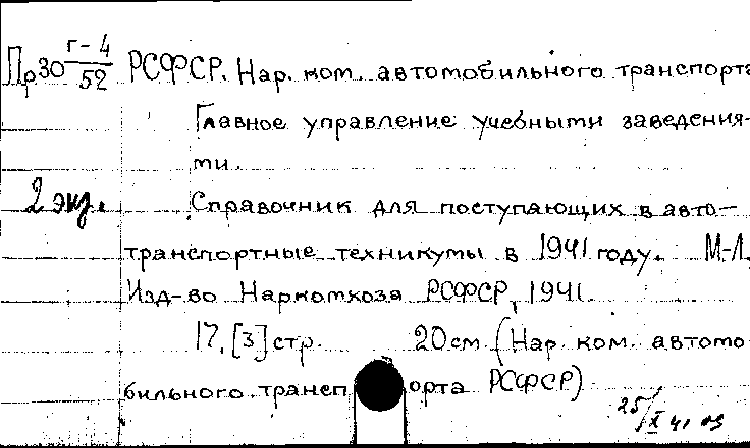 Пр30 г-4/52 РСФСР. Нар. ком. автомобильного транспорта
Главное управление учебными заведения-
ми.
2 экз. Справочник для поступающих в авто-
транспортные техникумы в 1941 году. М-Л.
Изд-во Наркомхоза РСФСР, 1941.
17, [3] стр. 20 см. (Нар. ком. автомо-
бильного трансп орта РСФСР)
25/X 41